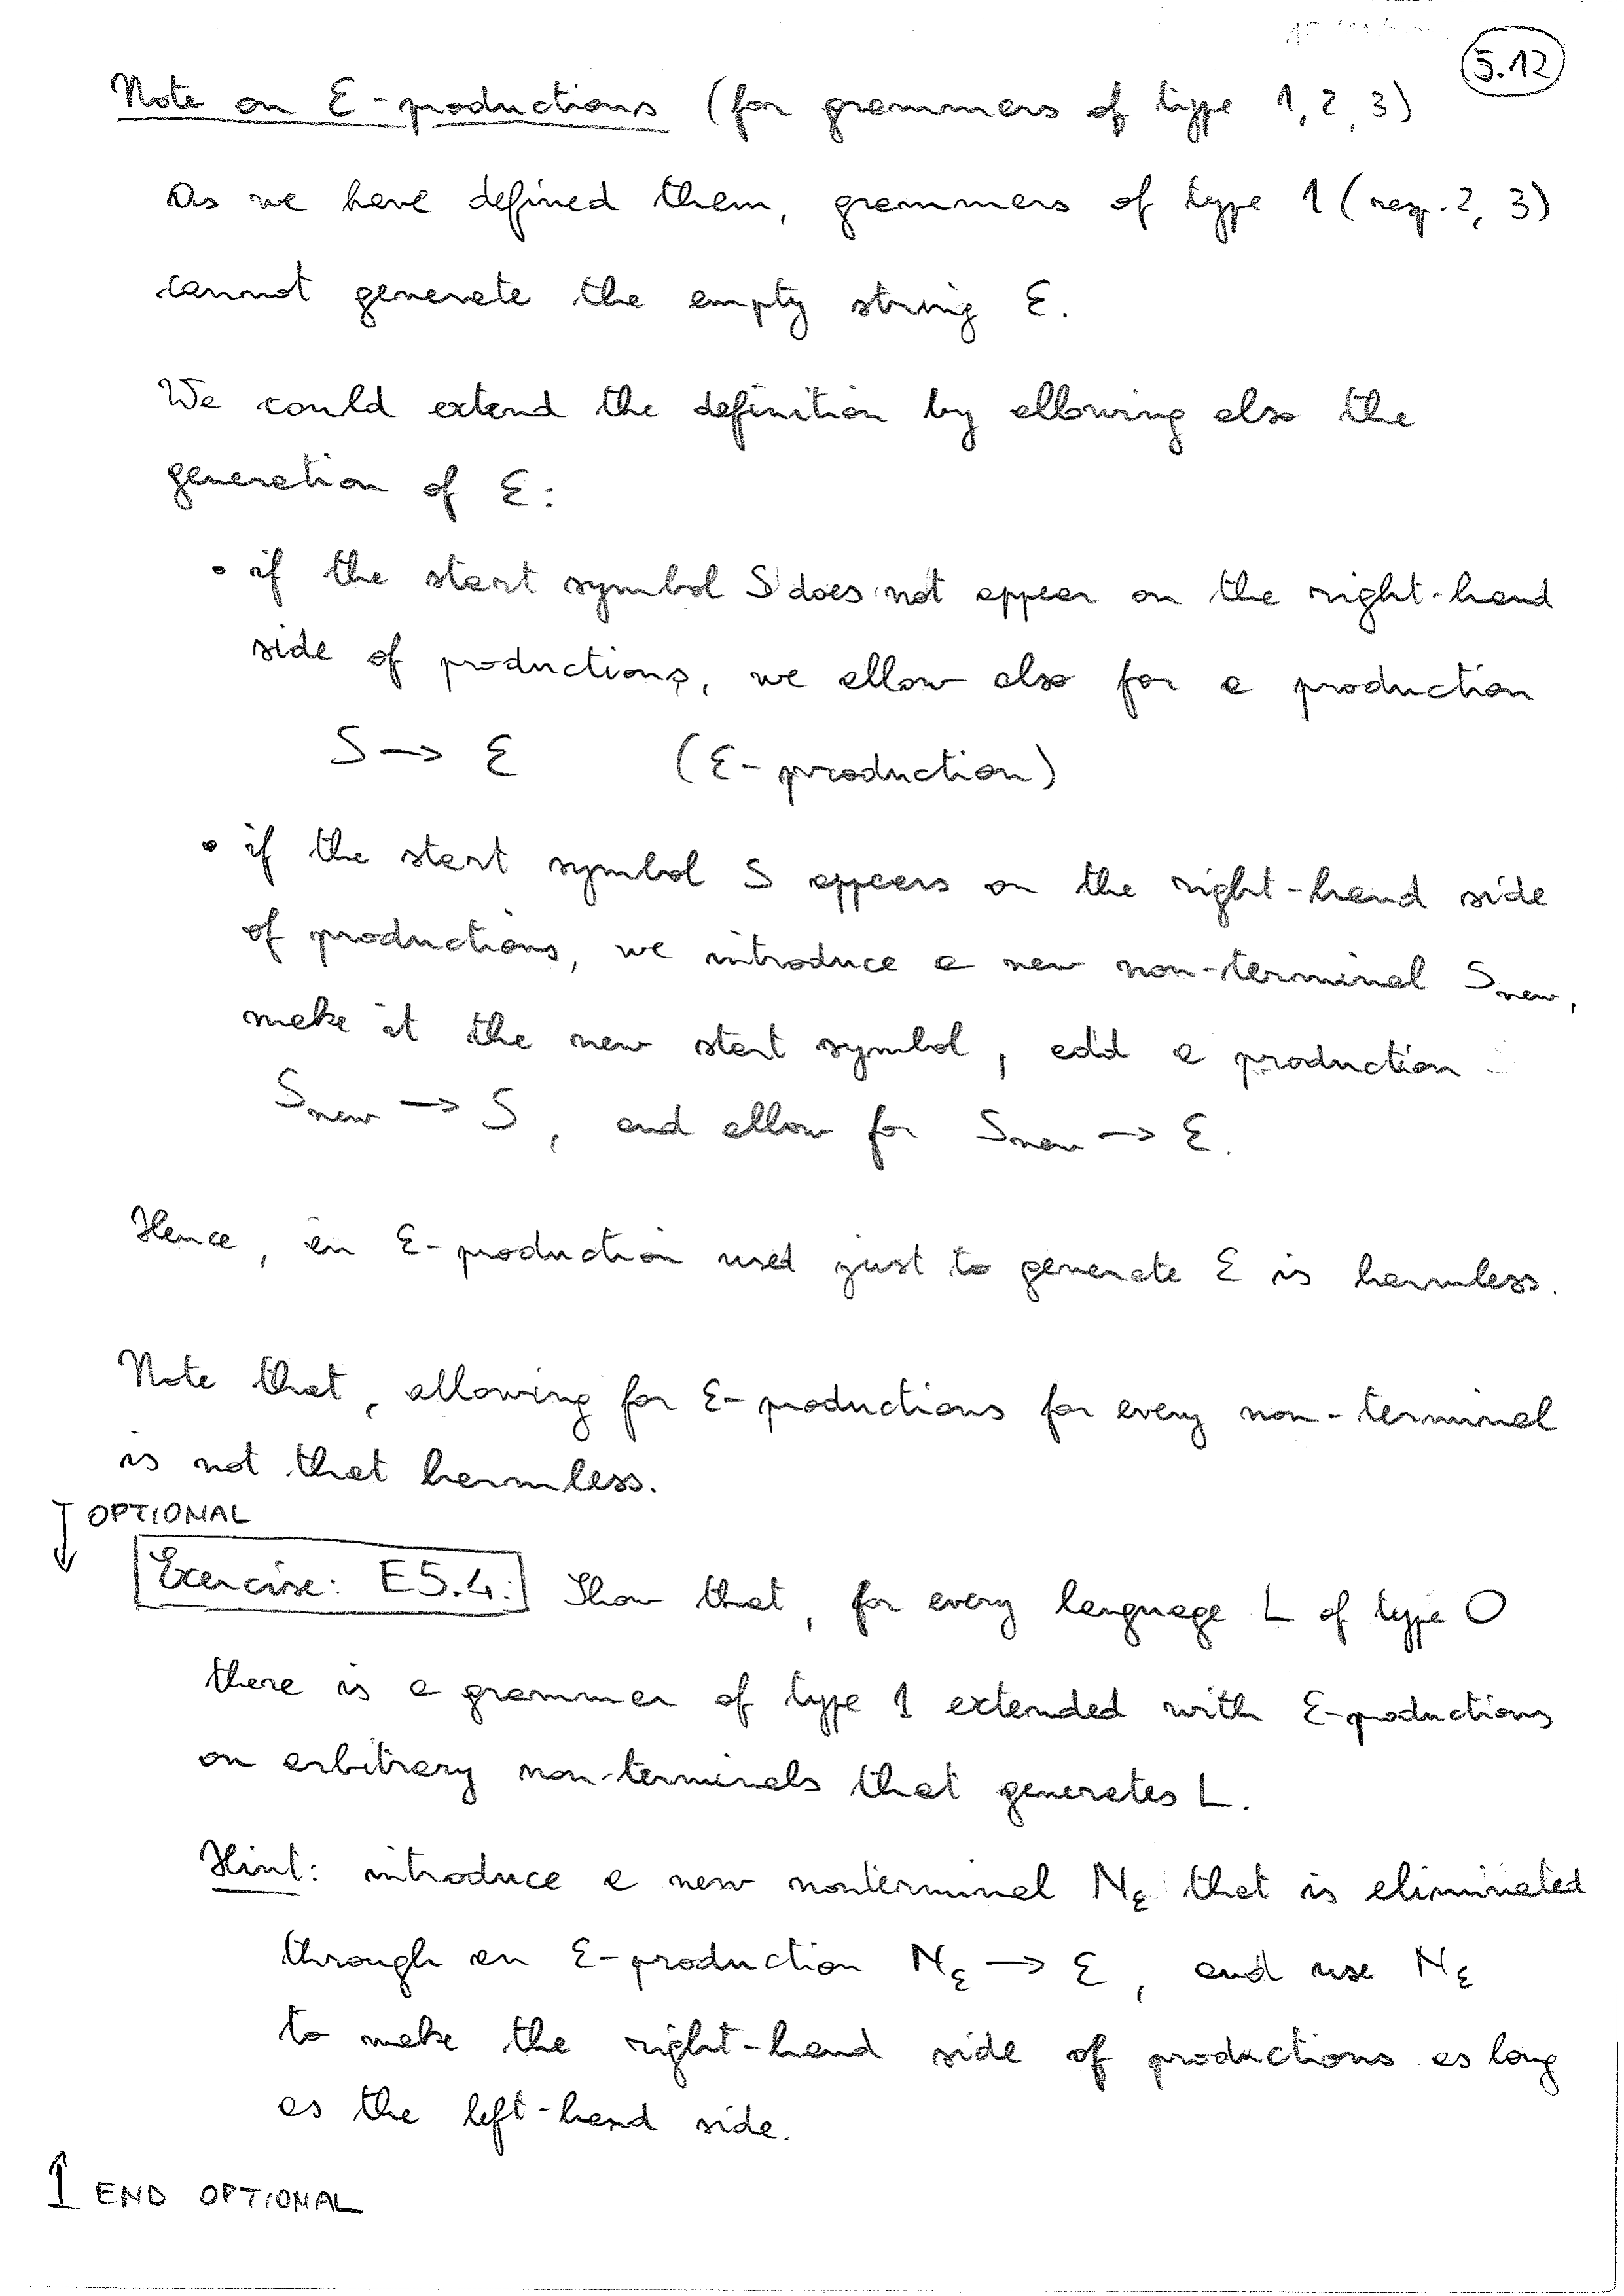 5.12
Note on ε-productions (for grammars of type 1, 2, 3)
As we have defined them, grammars of type 1 (resp. 2, 3)
cannot generate the empty string ε.
We could extend the definition by allowing also the
generation of ε:
• if the start symbol S does not appear on the right-hand
side of productions, we allow also for a production
S → ε (ε-production)
• if the start symbol S appears on the right-hand side
of productions, we introduce a new non-terminal Snew,
make it the new start symbol, add a production
Snew → S, and allow for Snew → ε.
Hence, an ε-production used just to generate ε is harmless.
Note that, allowing for ε-productions for every non-terminal
is not that harmless.
OPTIONAL
Exercise: E5.4: Show that, for every language L of type 0
there is a grammar of type 1 extended with ε-productions
on arbitrary non-terminals that generates L.
Hint: introduce a new nonterminal Nε that is eliminated
through an ε-production Nε → ε, and use Nε
to make the right-hand side of productions as long
as the left-hand side.
END OPTIONAL